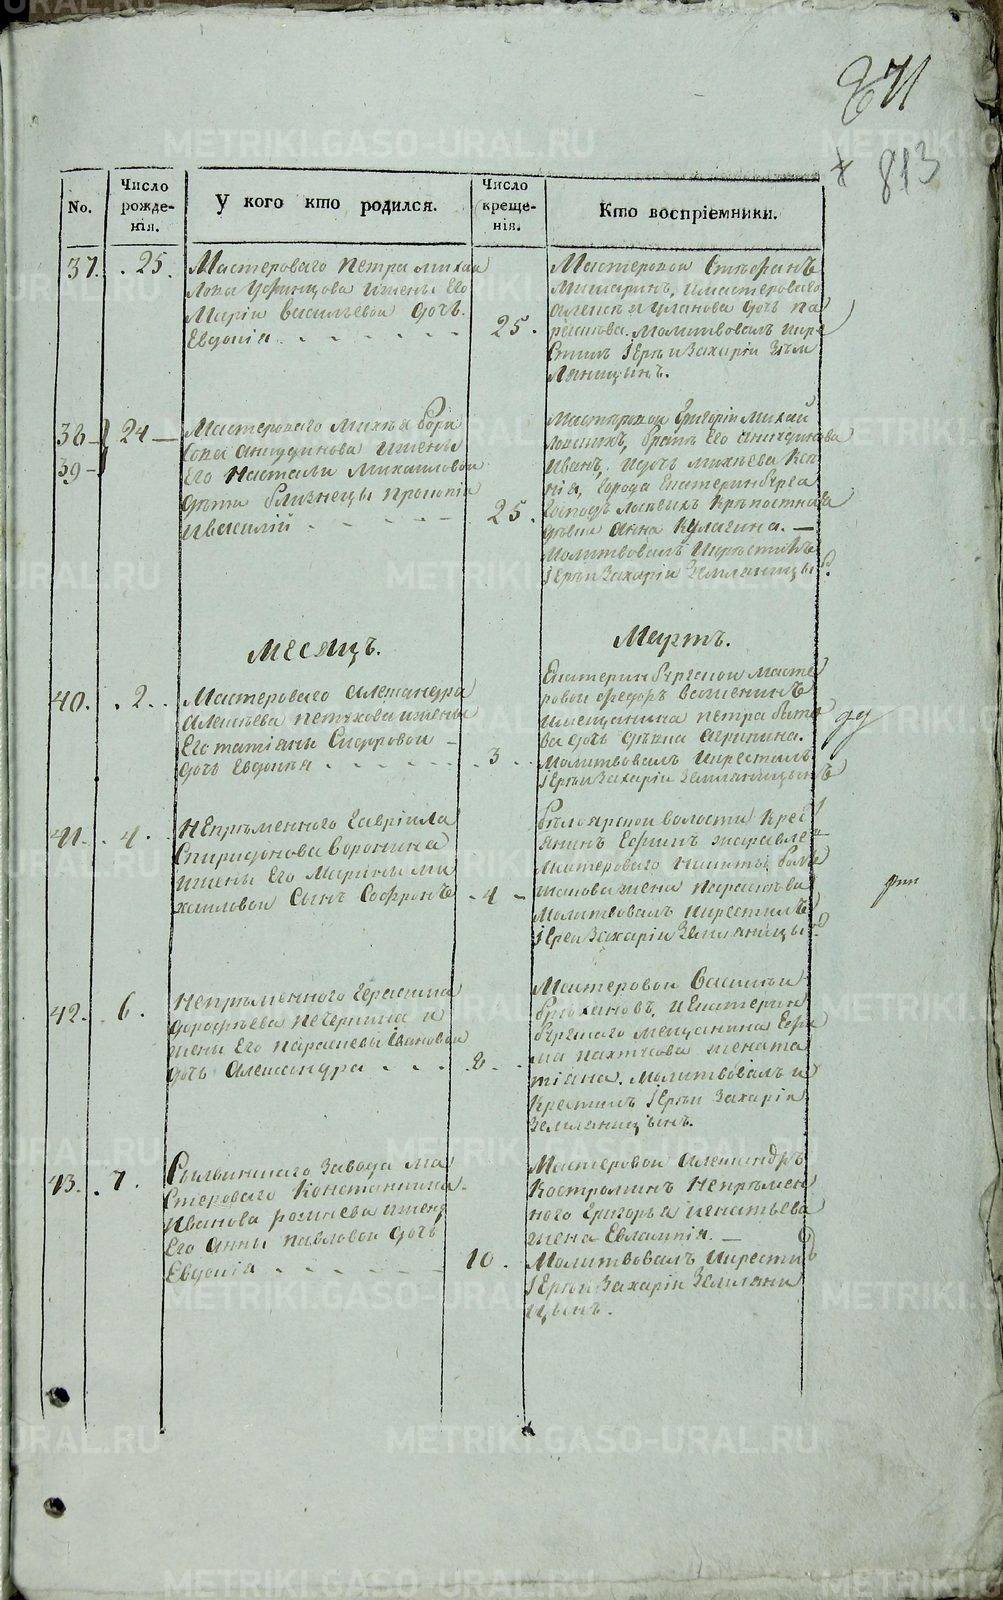 871
813
No.
Число рожде-нія.
У кого кто родился.
Число креще-нія.
Кто воспріемники.
37. 25.
Мастероваго Петра михаи
лова ижены Его
Маріи Васильевой дочь
Евдокія
25.
Мастеровой Стефанъ
имастероваго
дочь па
Молитвовалъ икре
стилъ Іерей Захарій Зем
ляницынъ.
38 24
39
Мастероваго Михея бори
сова ижены
Его Наталіи Михаиловой
дѣти близнецы Прокопій
иВасилій
25.
Мастеровой Григорій Михай
братъ Его
Иванъ, идочь михѣева Ксе
нія, города Екатеринбурга
Господъ крѣпостная
дѣвка Анна Кулагина.
Молитвовалъ икрестилъ
Іерей Захарій Земляницынъ.
Месяцъ.
Мартъ.
40. 2.
Мастероваго Александра
Алексѣева Петухова ижены
Его татіаны Сидоровой
дочь Евдокія
3
Екатеринбургской масте
ровой Федоръ
имещанина петра
ва дочь дѣвка Агрипина.
Молитвовалъ икрестилъ
Іерей Захарій Земляницынъ
41. 4.
Непременного Гавріила
Спиридонова Воронина
ижены Его Марины ми
хаиловой Сынъ Софронъ
4
белоярской волости крес
янинъ Ефимъ
Мастероваго Никиты
жена Параскева
Молитвовалъ икрестилъ
Іерей Захарій Земляницынъ
42. 6.
Непременного Герасима
Дорофѣева Печеркина и
жены Его параскевы Ивановой
дочь Александра
8
Мастеровой Василей
и Екатерин
бургскаго мещанина Ефи
ма жена та
тіана. Молитвовалъ и
Крестилъ Іерей Захарій
Земляницынъ.
43. 7.
завода ма
стероваго Константина
Иванова ижены
Его Анны павловой дочь
Евдокія
10.
Мастеровой Александръ
Костроминъ Непремен
ного Григорья игнатьева
жена Евлампія.
Молитвовалъ икрести
Іерей Захарій Земляни
цынъ.
METRIKI.GASO-URAL.RU